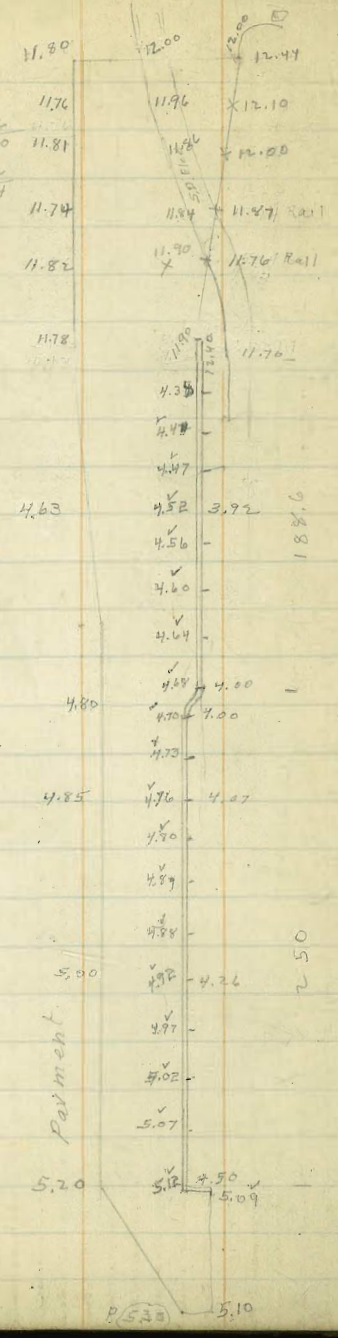 11.80 12.00 12.00 12.44
11.76 11.96 12.10
11.81 11.86 12.00
11.74 11.84 11.87 Rail
11.82 11.90 11.76 Rail
11.78 11.90 12.40 11.70
4.38
4.47
4.63 4.52 3.92
188.6
4.56
4.60
4.64
4.68 4.00
4.80 4.70 4.00
4.73
4.85 4.76 4.07
4.80
4.88
250
5.00 4.92 4.26
4.97
5.02
Pavment
5.07
5.20 5.12 4.50
5.09
5.10